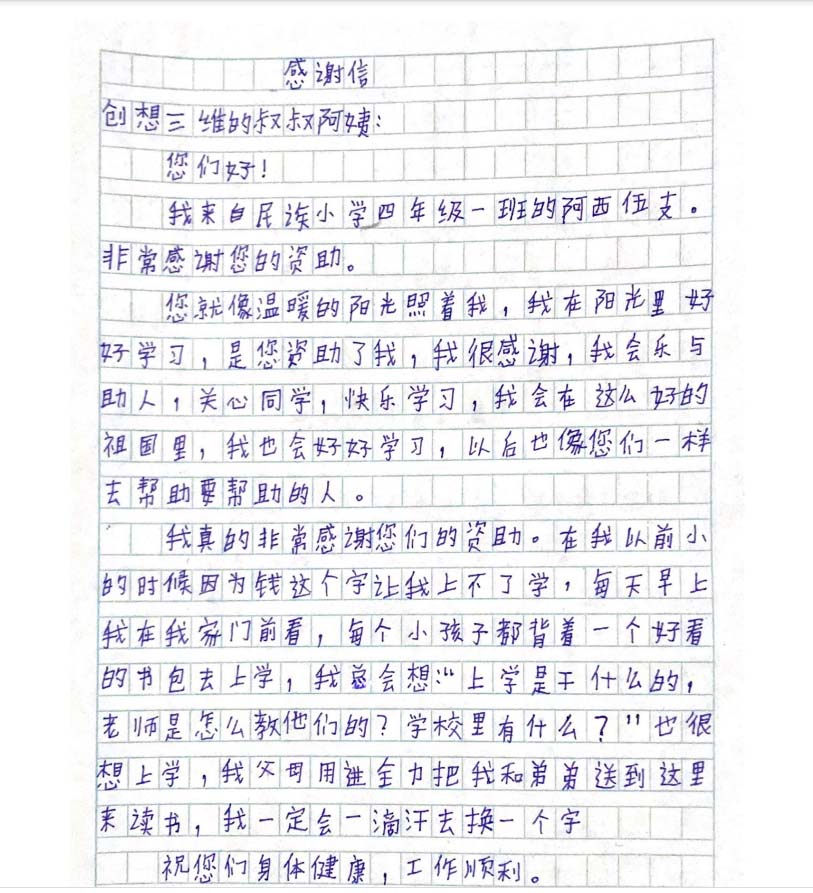 感谢信
创想三维的叔叔阿姨：
您们好！
我来自民族小学四年级一班的阿西伍支。
非常感谢您的资助。
您就像温暖的阳光照着我，我在阳光里好
好学习，是您资助了我，我很感谢，我会乐与
助人，关心同学，快乐学习，我会在这么好的
祖国里，我也会好好学习，以后也像您们一样
去帮助要帮助的人。
我真的非常感谢您们的资助。在我以前小
的时候因为钱这个字让我上不了学，每天早上
我在我家门前看，每个小孩子都背着一个好看
的书包去上学，我总会想：“上学是干什么的，
老师是怎么教他们的？学校里有什么？”也很
想上学，我父母用进全力把我和弟弟送到这里
来读书，我一定会一滴汗去换一个字
祝您们身体健康，工作顺利。